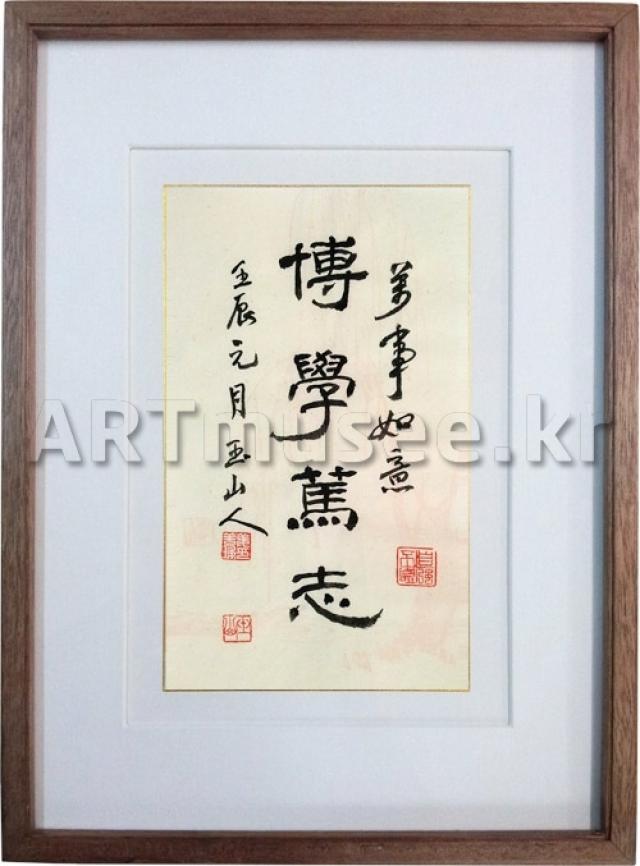 萬事如意
博學篤志
壬辰元月玉山人
ARTmusee.kr